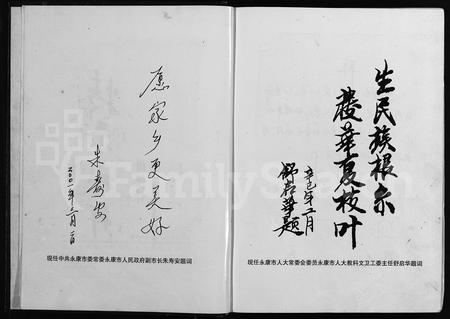 生民族根系
发华夏枝叶
辛巳年二月
舒启华题
现任永康市人大常委会委员永康市人大教科文卫工委主任舒启华题词
愿家乡更美好
朱寿安
二00一年二月二日
现任中共永康市委常委永康市人民政府副市长朱寿安题词
FamilySearch